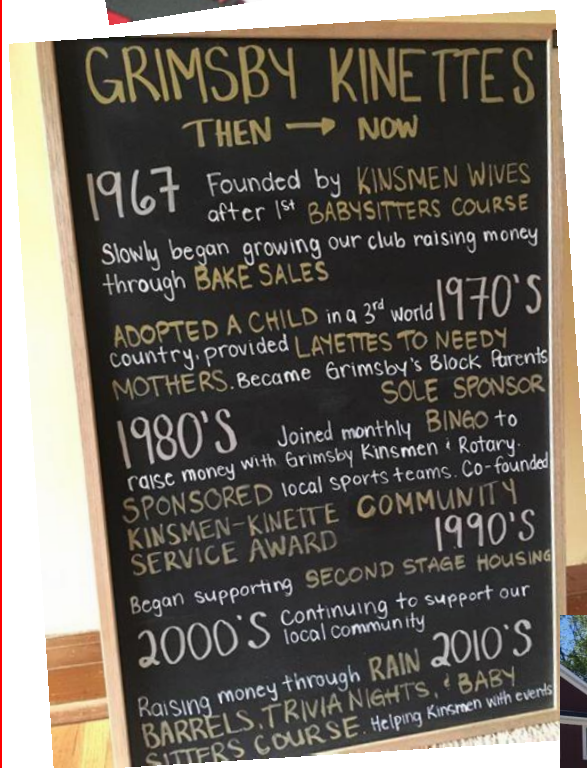 GRIMSBY KINETTES
THEN → NOW
1967 Founded by KINSMEN WIVES
after 1st BABYSITTERS COURSE
Slowly began growing our club raising money
through BAKE SALES
1970'S
ADOPTED A CHILD in a 3rd world
country, provided LAYETTES TO NEEDY
MOTHERS. Became Grimsby's Block Parents
SOLE SPONSOR
1980'S Joined monthly BINGO to
raise money with Grimsby Kinsmen & Rotary.
SPONSORED local sports teams. Co-founded
KINSMEN-KINETTE COMMUNITY
SERVICE AWARD
1990'S
Began supporting SECOND STAGE HOUSING
2000'S Continuing to support our
local community
2010'S
Raising money through RAIN
BARRELS, TRIVIA NIGHTS, & BABY
SITTERS COURSE. Helping Kinsmen with events